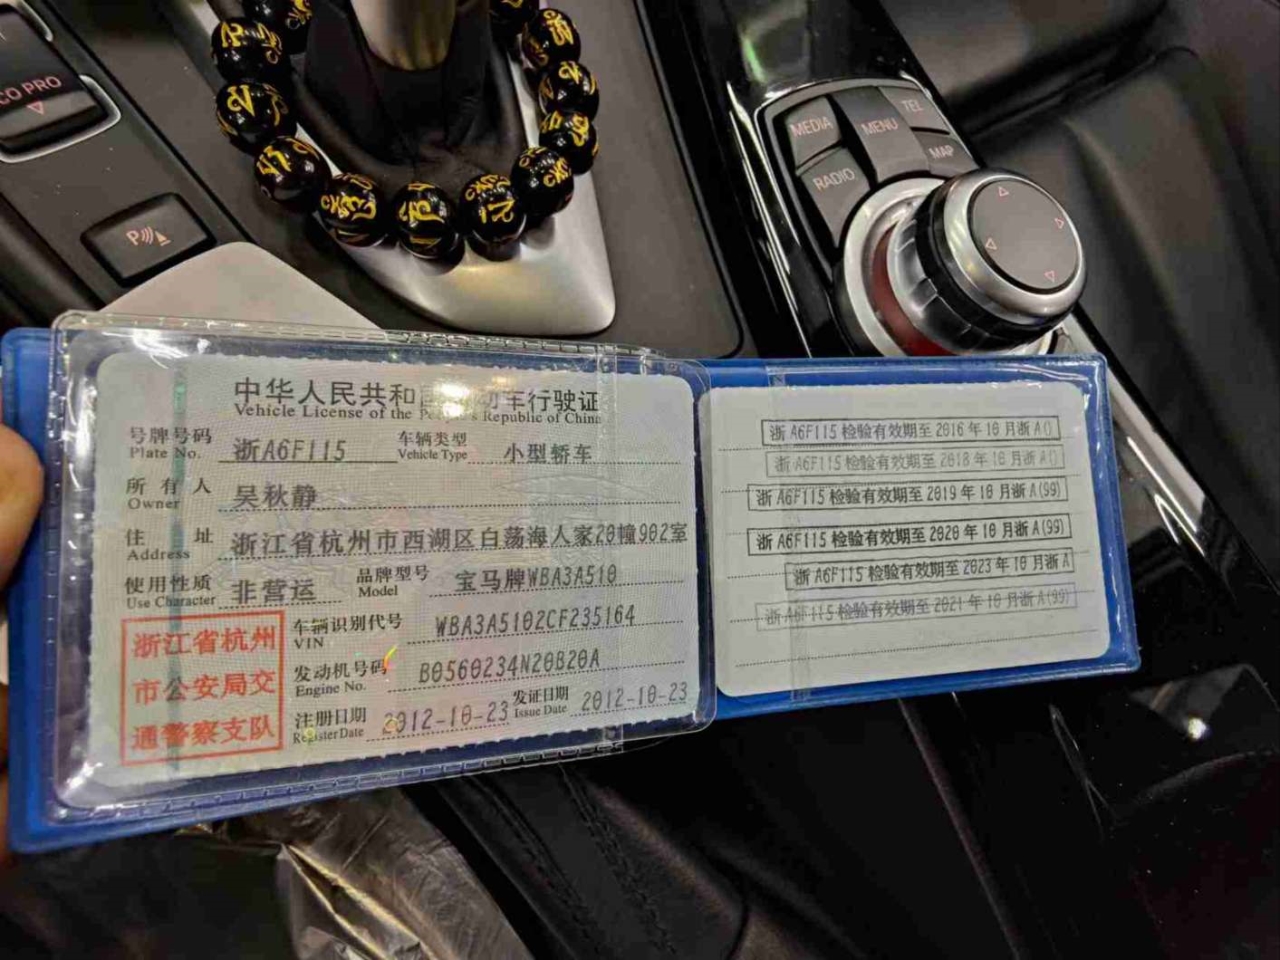 CO PRO
P
MEDIA
MENU
TEL
RADIO
MAP
中华人民共和国机动车行驶证
Vehicle License of the People's Republic of China
号牌号码 浙A6F115 车辆类型 小型轿车
Plate No. Vehicle Type
所有人 吴秋静
Owner
住址 浙江省杭州市西湖区白荡海人家20幢902室
Address
使用性质 非营运 品牌型号 宝马牌WBA3A510
Use Character Model
浙江省杭州
市公安局交
通警察支队
车辆识别代号 WBA3A5102CF235164
VIN
发动机号码 B0560234N20B20A
Engine No.
注册日期 2012-10-23 发证日期 2012-10-23
Register Date Issue Date
浙A6F115 检验有效期至2016年10月浙A()
浙A6F115 检验有效期至2018年10月浙A()
浙A6F115 检验有效期至2019年10月浙A(99)
浙A6F115 检验有效期至2020年10月浙A(99)
浙A6F115 检验有效期至2023年10月浙A
浙A6F115 检验有效期至2021年10月浙A(99)